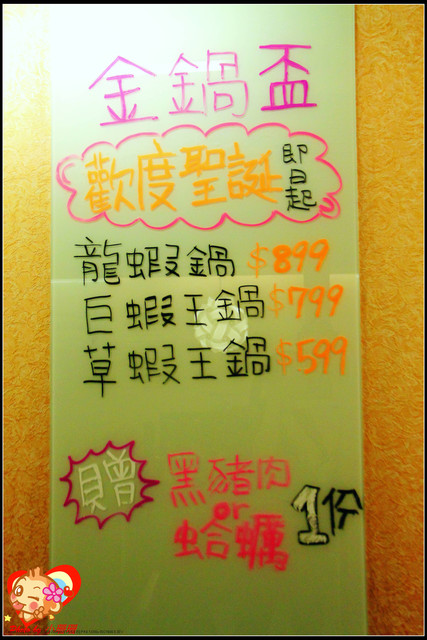 金鍋盃
歡度聖誕 即日起
龍蝦鍋 $899
巨蝦王鍋 $799
草蝦王鍋 $599
贈 黑豬肉
or
蛤蠣 1份